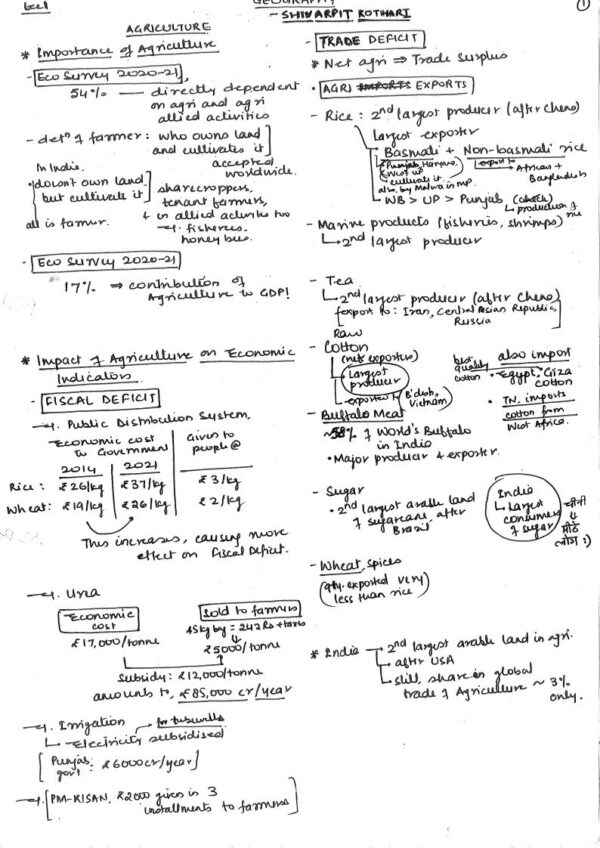 Lec 1
GEOGRAPHY
- SHIVARPIT KOTHARI
①
AGRICULTURE
* Importance of Agriculture
- Eco Survey 2020-21,
54% — directly dependent
on agri and agri
allied activities
- defn of farmer: who owns land
and cultivates it
accepted
worldwide.
In India,
• doesn't own land,
but cultivate it
sharecroppers,
tenant farmers,
+ in allied activities too
eg. fisheries,
honey bees.
all is farmer.
- Eco Survey 2020-21
17% ⇒ contribution of
Agriculture to GDP!
* Impact of Agriculture on Economic
Indicators
- FISCAL DEFICIT
eg. Public Distribution System,
Economic cost
to Government
Given to
people @
2014 2021
Rice: ₹26/kg ₹37/kg ₹3/kg
Wheat: ₹19/kg ₹26/kg ₹2/kg
This increases, causing more
effect on Fiscal Deficit.
eg. Urea
Economic
cost
₹17,000/tonne
Sold to farmers
45kg bg = 242 Rs + taxes
₹5000/tonne
Subsidy: ₹12,000/tonne
amounts to, ₹85,000 cr/year
eg. Irrigation
for tubewells
Electricity subsidised
[Punjab
govt: ₹6000 cr/year]
eg. [PM-KISAN, ₹2000 given in 3
installments to farmers]
- TRADE DEFICIT
* Net agri ⇒ Trade Surplus
• AGRI IMPORTS EXPORTS
- Rice: 2nd largest producer (after China)
largest exporter
Basmati + Non-basmati rice
Punjab, Haryana,
West UP
cultivate it.
also by Malwa in MP.
export to
African +
Bangladesh
WB > UP > Punjab (check)
production of
rice
- Marine products (fisheries, shrimps)
2nd largest producer
- Tea
2nd largest producer (after China)
export to: Iran, Central Asian Republic,
Russia
Raw
- Cotton
(net exporter)
largest
producer
exported to B'desh,
Vietnam
best
quality
cotton
also import
• Egypt, Giza
cotton
• TN. imports
cotton from
West Africa.
- Buffalo Meat
~58% of World's Buffalo
in India
• Major producer & exporter.
- Sugar
• 2nd largest arable land
of sugarcane, after
Brazil
India
largest
consumer
of sugar
चीनी
मीठे
लोग :)
- Wheat, spices
(qty. exported very
less than rice)
* India — 2nd largest arable land in agri.
after USA
still, share in global
trade of Agriculture ~ 3%
only.